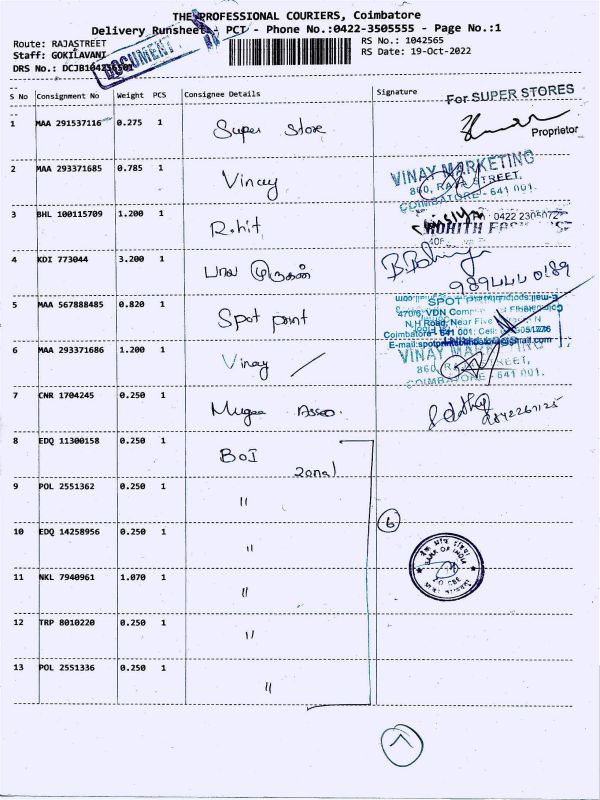 THE PROFESSIONAL COURIERS, Coimbatore
Delivery Runsheet - PCT - Phone No.:0422-3505555 - Page No.:1
Route: RAJASTREET
RS No.: 1042565
Staff: GOKILAVANI
RS Date: 19-Oct-2022
DOCUMENT
S No Consignment No Weight PCS Consignee Details Signature
For SUPER STORES
1 MAA 291537116 0.275 1 Super Store
Proprietor
2 MAA 293371685 0.785 1 Vinay
VINAY MARKETING
860, RAJA STREET,
COIMBATORE - 641 001.
3 BHL 100115709 1.200 1 Rohit
0422 2305072
4 KDI 773044 3.200 1 பால முருகன்
5 MAA 567888485 0.820 1 Spot print
SPOT
470/6, VDN
N.H Road, Near Five
Coimbatore - 641 001. Cell:
6 MAA 293371686 1.200 1 Vinay
VINAY MARKETING
860, RAJA STREET,
COIMBATORE - 641 001.
7 CNR 1704245 0.250 1 Mugaa Asso.
8 EDQ 11300158 0.250 1 BOI
zonal
9 POL 2551362 0.250 1 "
6
10 EDQ 14258956 0.250 1 "
BANK OF INDIA
11 NKL 7940961 1.070 1 "
12 TRP 8010220 0.250 1 "
13 POL 2551336 0.250 1 "